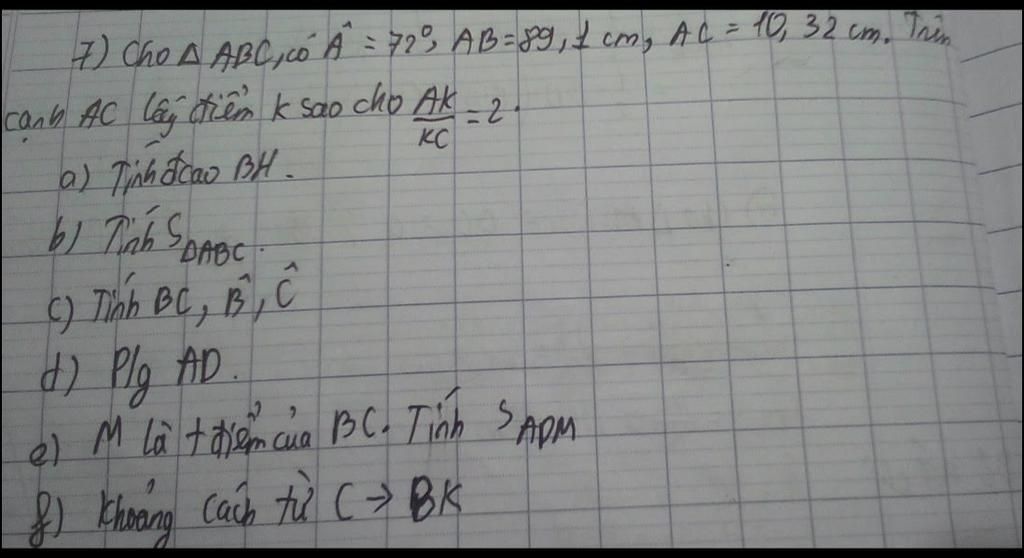 7) Cho △ ABC, có Â = 72°, AB = 89,1 cm, AC = 10,32 cm. Trên
cạnh AC lấy điểm K sao cho AK/KC = 2.
a) Tính đcao BH.
b) Tính S△ABC.
c) Tính BC, B̂, Ĉ
d) P/g AD.
e) M là tđiểm của BC. Tính SADM
f) Khoảng cách từ C → BK